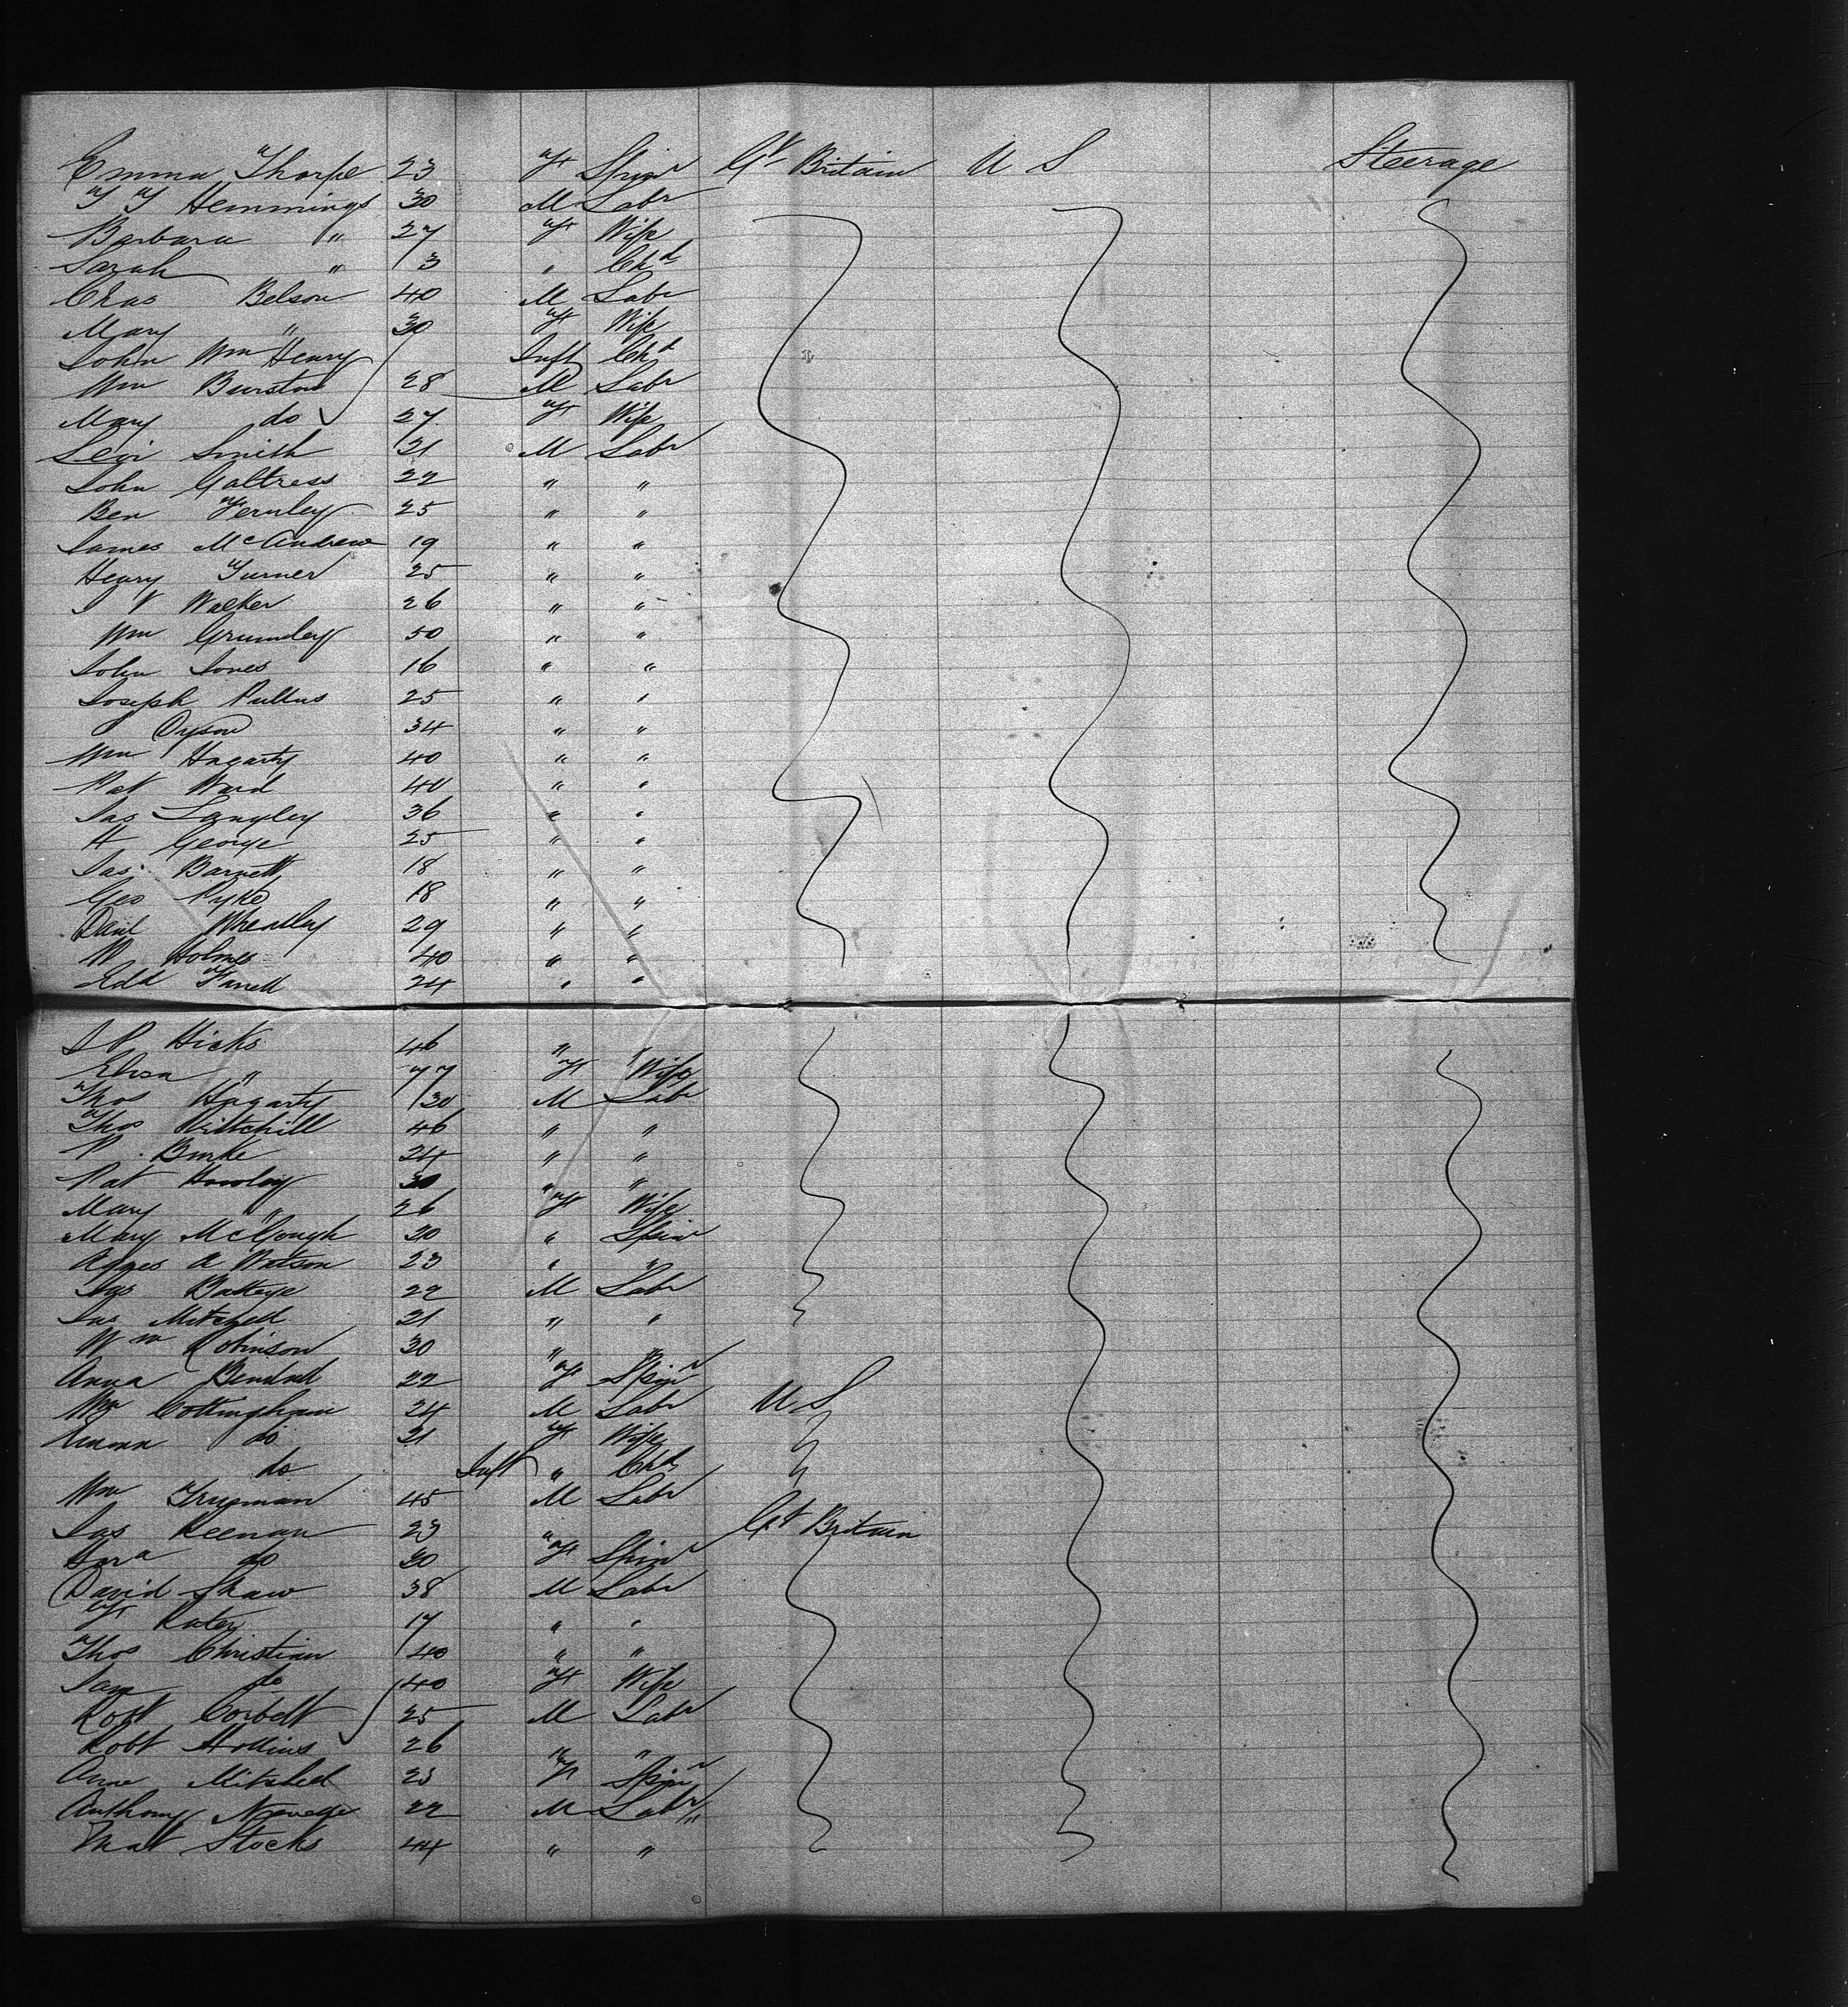 Emma Thorpe 23 F Spinr Gt Britain U S Steerage
T T Hemmings 30 M Labr
Barbara " 27 F Wife
Sarah " 3 " Chd
Chas Belson 40 M Labr
Mary " 30 F Wife
John Wm Henry Inft Chd
Wm Burston 28 M Labr
Mary do 27 F Wife
Levi Smith 21 M Labr
John Galtress 22 " "
Ben Fernley 25 " "
James McAndrew 19 " "
Henry Turner 25 " "
J V Walker 26 " "
Wm Grumley 50 " "
John Jones 16 " "
Joseph Pullus 25 " "
Dyson 34 " "
Wm Hagarty 40 " "
Pat Ward 40 " "
Jas Langley 36 " "
H George 25 " "
Jas Barnett 18 " "
Geo Pyke 18 " "
Danl Wheatley 29 " "
W Holmes 40 " "
Edd Farrell 24 " "
J P Hicks 46 " "
Eliza " 47 F Wife
Thos Hagarty 30 M Labr
Thos Wiltchill 46 " "
P. Burke 24 " "
Pat Howley 30 " "
Mary " 26 F Wife
Mary McGough 20 " Spinr
Agnes A Watson 23 " "
Jas 22 M Labr
Jas Mitchell 21 " "
Wm Robinson 30 " "
Anna 22 F Spinr
Wm Cottingham 24 M Labr U S
Emma do 21 F Wife
do Inft " Chd
Wm Trueman 45 M Labr
Jas Keenan 23 " Gt Britain
do 20 F Spinr
David Shaw 38 M Labr
F Kater 17 " "
Thos Christian 40 " "
Jane do 40 F Wife
Robt Corbett 25 M Labr
Robt Hollins 26 " "
Anne Mitchell 23 F Spinr
Anthony 22 M Labr
Matt Stocks 44 " "